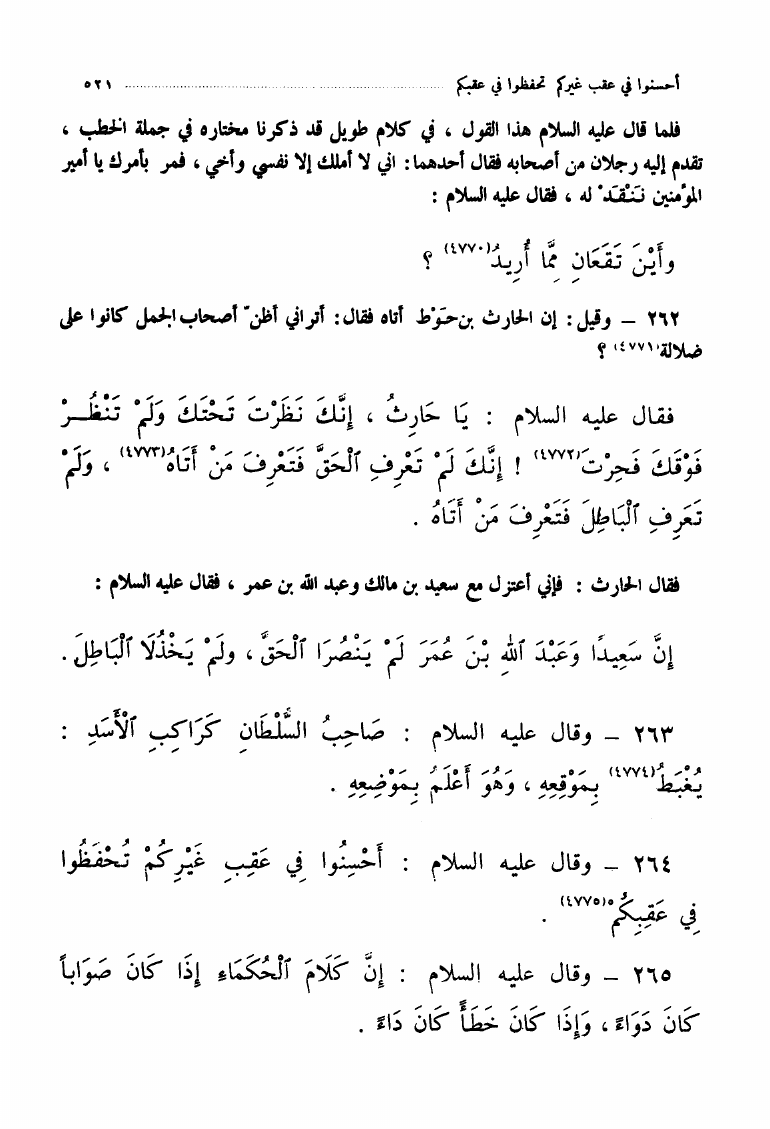 أحسنوا في عقب غيركم تحفظوا في عقبكم ........................ ٥٢١
فلما قال عليه السلام هذا القول ، في كلام طويل قد ذكرنا مختاره في جملة الخطب ،
تقدم إليه رجلان من أصحابه فقال أحدهما : اني لا أملك إلا نفسي وأخي ، فمر بأمرك يا أمير
المؤمنين نَنْقَدْ له ، فقال عليه السلام :
وأَيْنَ تَقَعَانِ مِمَّا أُرِيدُ(٤٧٧٠) ؟
٢٦٢ – وقيل : إن الحارث بن حَوْط أتاه فقال : أتراني أظنّ أصحاب الجمل كانوا على
ضلالة(٤٧٧١) ؟
فقال عليه السلام : يَا حَارِثُ ، إِنَّكَ نَظَرْتَ تَحْتَكَ وَلَمْ تَنْظُرْ
فَوْقَكَ فَحِرْتَ(٤٧٧٢) ! إِنَّكَ لَمْ تَعْرِفِ ٱلْحَقَّ فَتَعْرِفَ مَنْ أَتَاهُ(٤٧٧٣) ، وَلَمْ
تَعْرِفِ ٱلْبَاطِلَ فَتَعْرِفَ مَنْ أَتَاهُ .
فقال الحارث : فإني أعتزل مع سعيد بن مالك وعبد الله بن عمر ، فقال عليه السلام :
إِنَّ سَعِيدًا وَعَبْدَ ٱللهِ بْنَ عُمَرَ لَمْ يَنْصُرَا ٱلْحَقَّ ، ولَمْ يَخْذُلَا ٱلْبَاطِلَ .
٢٦٣ – وقال عليه السلام : صَاحِبُ السُّلْطَانِ كَرَاكِبِ ٱلْأَسَدِ :
يُغْبَطُ(٤٧٧٤) بِمَوْقِعِهِ ، وَهُوَ أَعْلَمُ بِمَوْضِعِهِ .
٢٦٤ – وقال عليه السلام : أَحْسِنُوا فِي عَقِبِ غَيْرِكُمْ تُحْفَظُوا
فِي عَقِبِكُمْ(٤٧٧٥) .
٢٦٥ – وقال عليه السلام : إِنَّ كَلَامَ ٱلْحُكَمَاءِ إِذَا كَانَ صَوَاباً
كَانَ دَوَاءً ، وَإِذَا كَانَ خَطَأً كَانَ دَاءً .